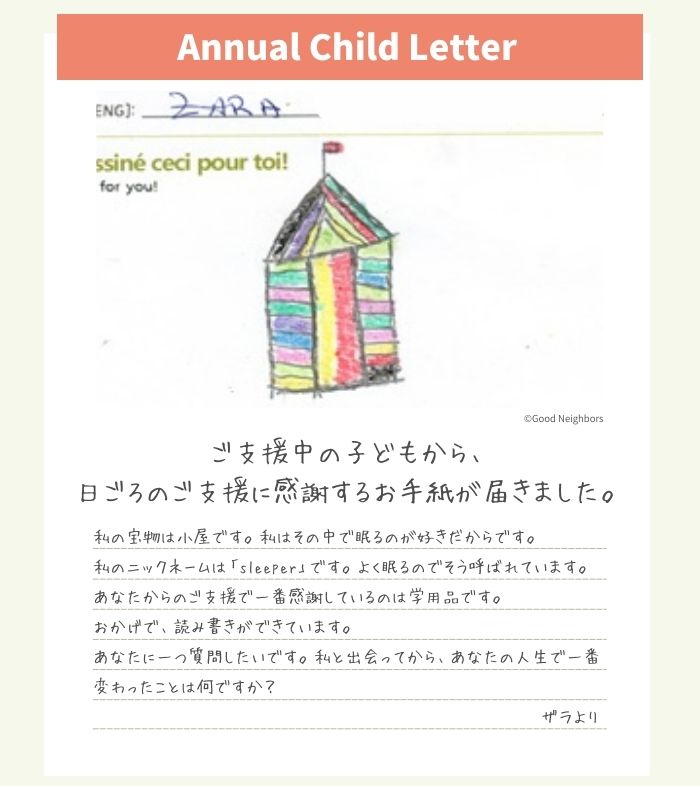 Annual Child Letter
ENG]: ZARA
ssiné ceci pour toi!
for you!
©Good Neighbors
ご支援中の子どもから、
日ごろのご支援に感謝するお手紙が届きました。
私の宝物は小屋です。私はその中で眠るのが好きだからです。
私のニックネームは「sleeper」です。よく眠るのでそう呼ばれています。
あなたからのご支援で一番感謝しているのは学用品です。
おかげで、読み書きができています。
あなたに一つ質問したいです。私と出会ってから、あなたの人生で一番
変わったことは何ですか？
ザラより